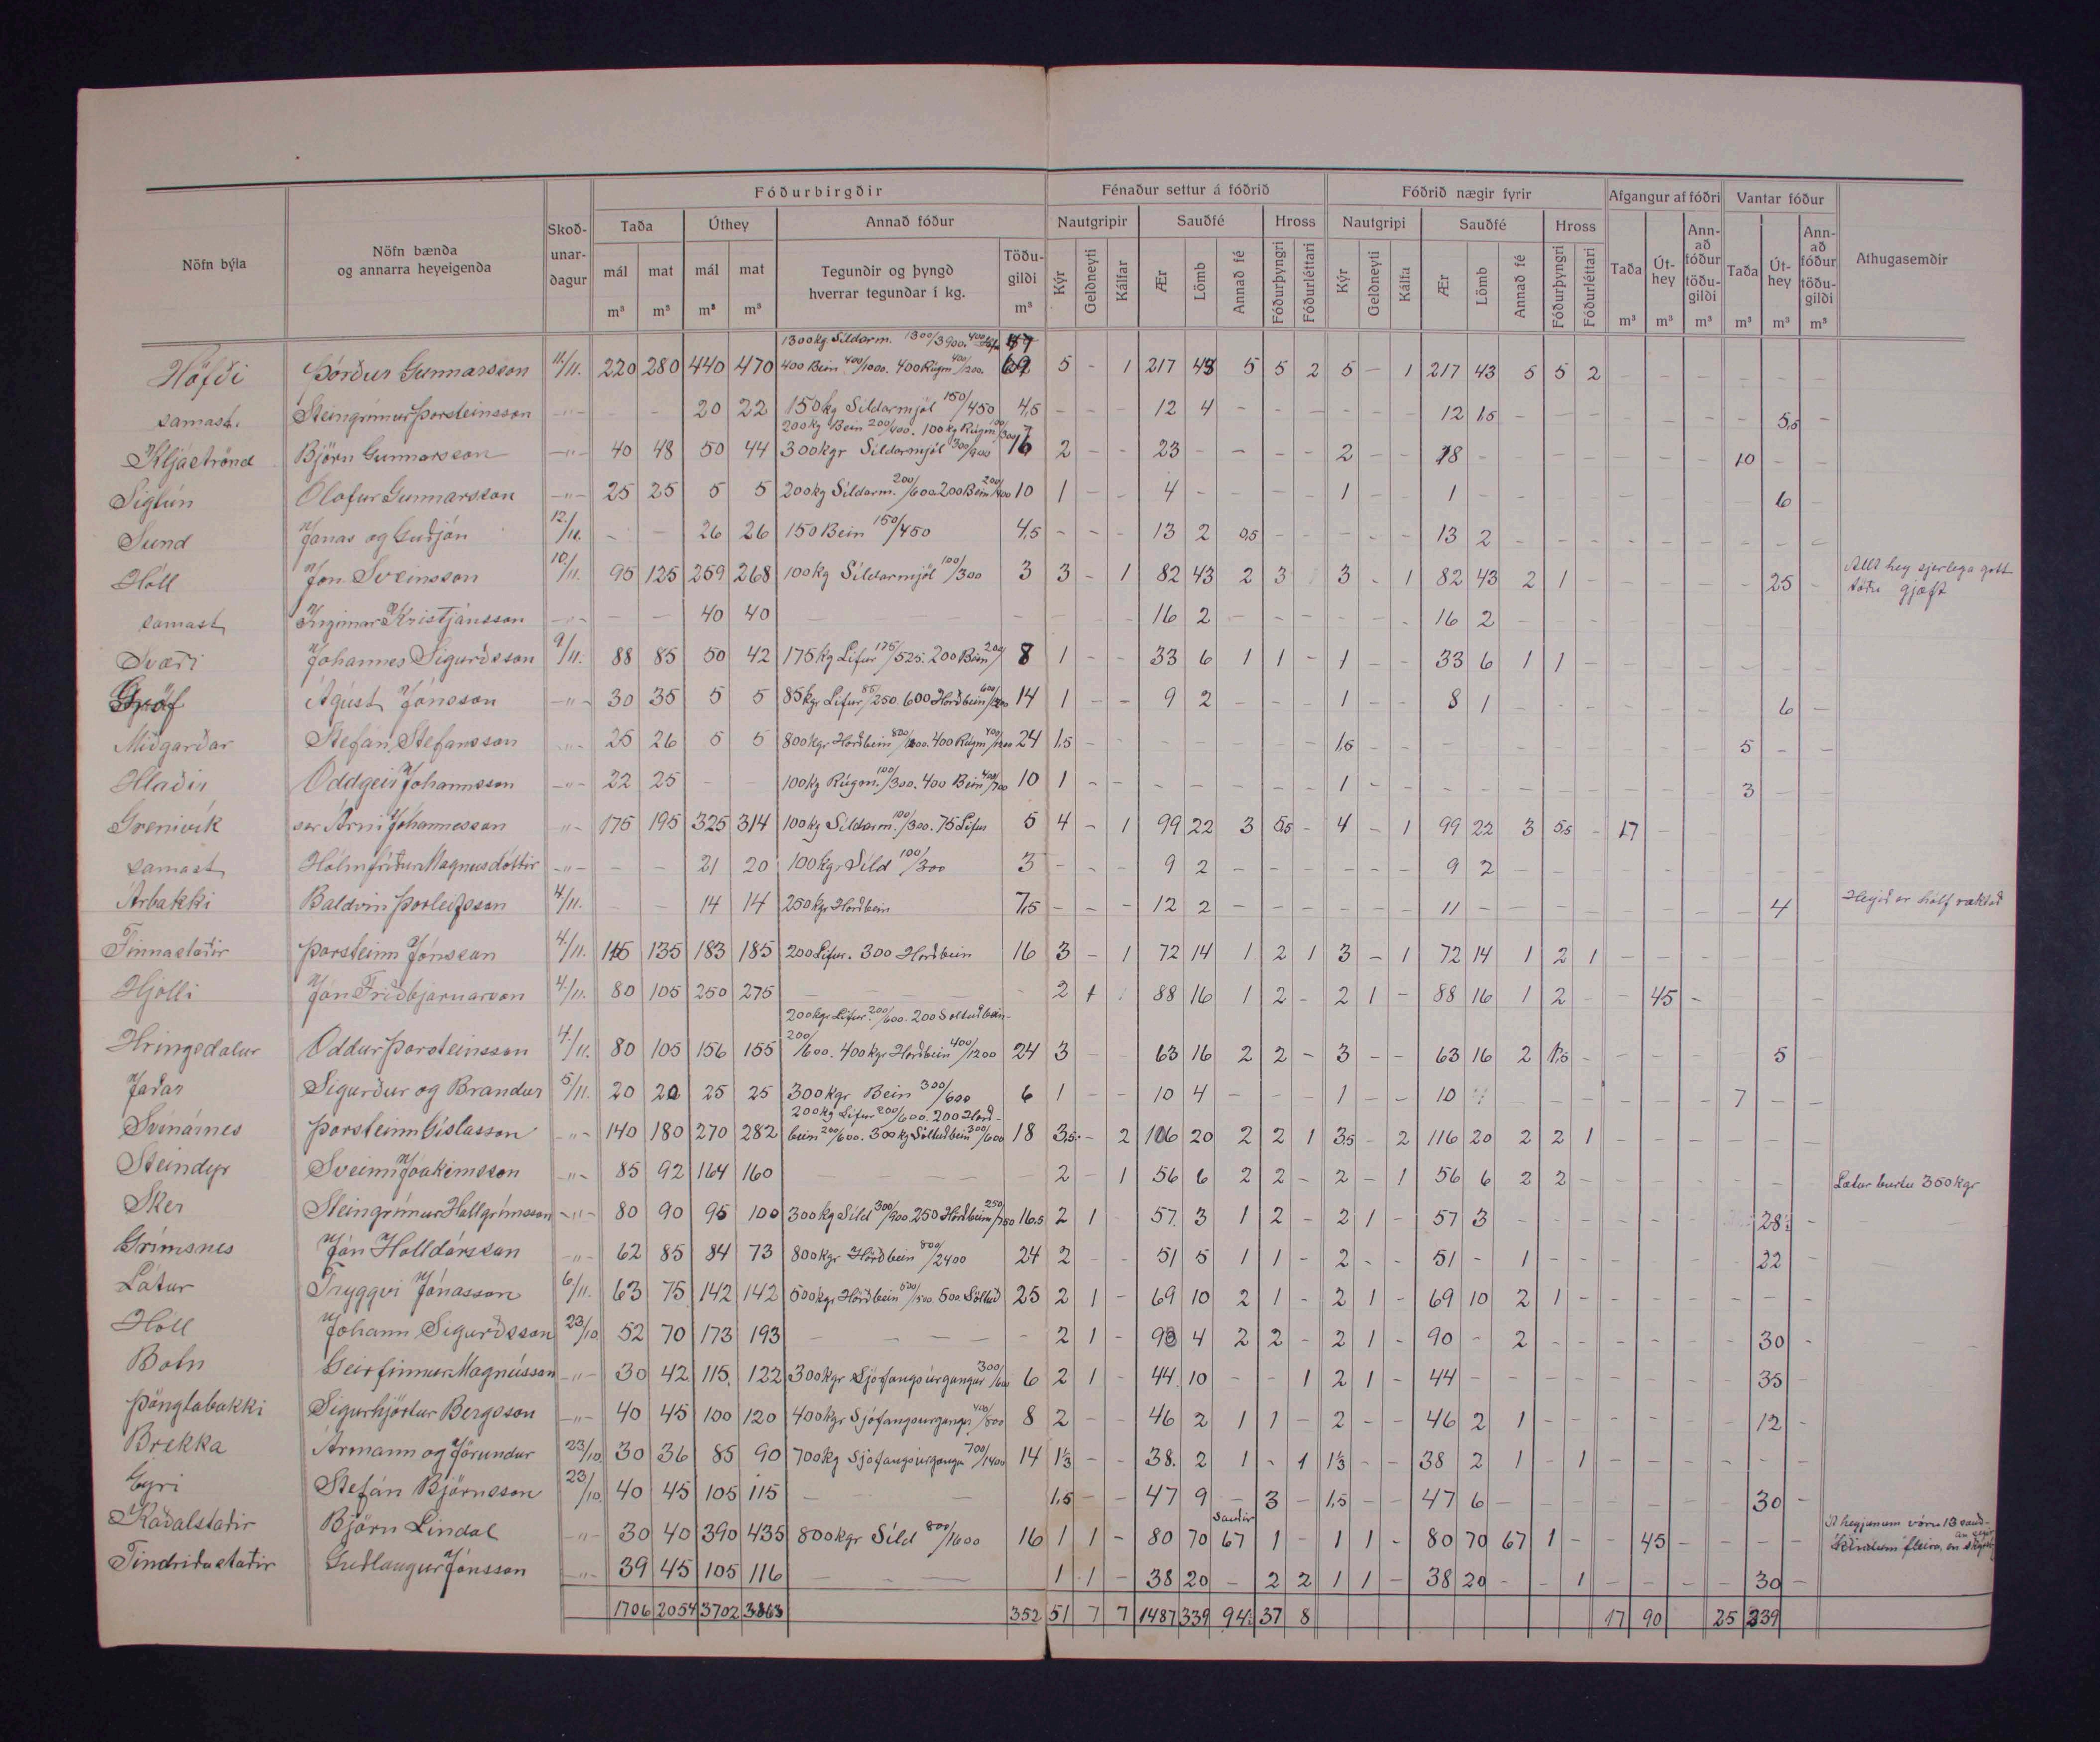 Fóðurbirgðir | Fénaður settur á fóðrið | Fóðrið nægir fyrir | Afgangur af fóðri | Vantar fóður
Nöfn býla | Nöfn bænda og annarra heyeigenda | Skoð-unar-dagur | Taða | Úthey | Annað fóður | Nautgripir | Sauðfé | Hross | Nautgripi | Sauðfé | Hross | Taða | Út-hey | Ann-að fóður töðu-gildi | Taða | Út-hey | Ann-að fóður töðu-gildi | Athugasemdir
mál | mat | mál | mat | Tegundir og þyngd hverrar tegundar í kg. | Töðu-gildi | Kýr | Geldneyti | Kálfar | Ær | Lömb | Annað fé | Fóðurþyngri | Fóðurléttari | Kýr | Geldneyti | Kálfa | Ær | Lömb | Annað fé | Fóðurþyngri | Fóðurléttari
m³ | m³ | m³ | m³ | m³ | m³ | m³ | m³ | m³ | m³ | m³
1300 kg Síldarm. 1300/3900.
Höfði | Þórður Gunnarsson | 11/11. | 220 | 280 | 440 | 470 | 400 Bein 400/1000. 400 Rúgm 400/1200. | 5 | - | 1 | 217 | 43 | 5 | 5 | 2 | 5 | - | 1 | 217 | 43 | 5 | 5 | 2
samast. | Steingrímur Þorsteinsson | -"- | - | - | 20 | 22 | 150 kg Síldarmjöl 150/450 | 4,5 | - | - | - | 12 | 4 | - | - | - | - | - | - | 12 | 1,5 | 5,5
200 kg Bein 200/400. 100 kg Rúgm 100/300
Kljáströnd | Björn Gunnarsson | -"- | 40 | 48 | 50 | 44 | 300 kgr Síldarmjöl 300/900 | 16 | 2 | - | - | 23 | - | - | - | - | 2 | - | - | 18 | 10
Sigtún | Ólafur Gunnarsson | -"- | 25 | 25 | 5 | 5 | 200 kg Síldarm. 200/600 200 Bein 200/400 | 10 | 1 | - | - | 4 | - | - | - | - | 1 | - | - | 1 | 6
Sund | Jónas og Guðjón | 12/11. | - | - | 26 | 26 | 150 Bein 150/450 | 4,5 | - | - | - | 13 | 2 | 0,5 | - | - | - | - | - | 13 | 2
Hóll | Jón Sveinsson | 10/11. | 95 | 125 | 259 | 268 | 100 kg Síldarmjöl 100/300 | 3 | 3 | - | 1 | 82 | 43 | 2 | 3 | 3 | - | 1 | 82 | 43 | 2 | 1 | 25 | Allt hey sjerlega gott töðu gjæft
samast | Ingimar Kristjánsson | -"- | - | - | 40 | 40 | - | - | 16 | 2 | - | - | - | - | - | - | 16 | 2
Svæði | Jóhannes Sigurðsson | 9/11. | 88 | 85 | 50 | 42 | 175 kg Lifur 175/525. 200 Bein 200/ | 8 | 1 | - | - | 33 | 6 | 1 | 1 | - | 1 | - | - | 33 | 6 | 1 | 1
Gröf | Ágúst Jónsson | -"- | 30 | 35 | 5 | 5 | 85 kgr Lifur 85/250. 600 Horðbein 600/1200 | 14 | 1 | - | - | 9 | 2 | - | - | - | 1 | - | - | 8 | 1 | 6
Miðgarðar | Stefán Stefánsson | -"- | 25 | 26 | 5 | 5 | 800 kgr Horðbein 400 Rúgm 400/1200 | 24 | 1,5 | - | - | 1,5 | 5
Hlaðir | Oddgeir Jóhannsson | -"- | 22 | 25 | - | - | 100 kg Rúgm. 100/300. 400 Bein 400/700 | 10 | 1 | - | - | 1 | 3
Grenivík | sér Árni Jóhannesson | -"- | 175 | 195 | 325 | 314 | 100 kg Síldarm. 100/300. 75 Lifur | 5 | 4 | - | 1 | 99 | 22 | 3 | 5,5 | - | 4 | - | 1 | 99 | 22 | 3 | 5,5 | - | 17
samast | Hólmfríður Magnúsdóttir | -"- | - | - | 21 | 20 | 100 kgr Síld 100/300 | 3 | - | - | - | 9 | 2 | - | - | - | - | - | - | 9 | 2
Árbakki | Baldvin Þorleifsson | 4/11. | - | - | 14 | 14 | 250 kgr Horðbein | 7,5 | - | - | - | 12 | 2 | - | - | - | - | - | - | 11 | 4 | Heyið er hálf ræktað
Finnastaðir | Þorsteinn Jónsson | 4./11. | 115 | 135 | 183 | 185 | 200 Lifur. 300 Horðbein | 16 | 3 | - | 1 | 72 | 14 | 1 | 2 | 1 | 3 | - | 1 | 72 | 14 | 1 | 2 | 1
Hjalli | Jón Friðbjarnarson | 4./11. | 80 | 105 | 250 | 275 | - | 2 | 1 | 88 | 16 | 1 | 2 | - | 2 | 1 | - | 88 | 16 | 1 | 2 | - | 45
200 kgr Lifur. 200/600. 200 Saltuð bein-
Hringsdalur | Oddur Þorsteinsson | 4./11. | 80 | 105 | 156 | 155 | 200/600. 400 kgr Horðbein 400/1200 | 24 | 3 | - | - | 63 | 16 | 2 | 2 | - | 3 | - | - | 63 | 16 | 2 | 1,5 | 5
Jaðar | Sigurður og Brandur | 5/11. | 20 | 20 | 25 | 25 | 300 kgr Bein 300/600 | 6 | 1 | - | - | 10 | 4 | - | - | - | 1 | - | - | 10 | 7
200 kg Lifur 200/600. 200 Horð-
Svínárnes | Þorsteinn Gíslason | -"- | 140 | 180 | 270 | 282 | bein 200/600. 300 kg Söltuðbein 300/600 | 18 | 3,5 | - | 2 | 116 | 20 | 2 | 2 | 1 | 3,5 | - | 2 | 116 | 20 | 2 | 2 | 1
Steindyr | Sveinn Jóakimsson | -"- | 85 | 92 | 164 | 160 | - | 2 | - | 1 | 56 | 6 | 2 | 2 | - | 2 | - | 1 | 56 | 6 | 2 | 2 | Lætur burtu 350 kgr
Sker | Steingrímur Hallgrímsson | -"- | 80 | 90 | 95 | 100 | 300 kg Síld 300/900. 250 Horðbein 250/750 | 16,5 | 2 | 1 | 57 | 3 | 1 | 2 | - | 2 | 1 | - | 57 | 3 | 28
Grímsnes | Jón Halldórsson | -"- | 62 | 85 | 84 | 73 | 800 kgr Horðbein 800/2400 | 24 | 2 | - | - | 51 | 5 | 1 | 1 | - | 2 | - | - | 51 | - | 1 | 22
Látur | Tryggvi Jónasson | 6/11. | 63 | 75 | 142 | 142 | 500 kgr Horðbein 500 Söltuð | 25 | 2 | 1 | - | 69 | 10 | 2 | 1 | - | 2 | 1 | - | 69 | 10 | 2 | 1
Hóll | Jóhann Sigurðsson | 23/10 | 52 | 70 | 173 | 193 | - | 2 | 1 | - | 90 | 4 | 2 | 2 | - | 2 | 1 | - | 90 | - | 2 | 30
Botn | Geirfinnur Magnússon | -"- | 30 | 42 | 115 | 122 | 300 kgr Sjófangsúrgangur 300/600 | 6 | 2 | 1 | - | 44 | 10 | - | - | 1 | 2 | 1 | - | 44 | 35
Þönglabakki | Sigurhjörtur Bergsson | -"- | 40 | 45 | 100 | 120 | 400 kgr Sjófangsúrgangr 400/800 | 8 | 2 | - | - | 46 | 2 | 1 | 1 | - | 2 | - | - | 46 | 2 | 1 | 12
Brekka | Ármann og Jörundur | 23/10 | 30 | 36 | 85 | 90 | 700 kg Sjófangsúrgangu 700/1400 | 14 | 1⅓ | - | - | 38 | 2 | 1 | - | 1 | 1⅓ | - | - | 38 | 2 | 1 | - | 1
Eyri | Stefán Björnsson | 23/10. | 40 | 45 | 105 | 115 | - | 1,5 | - | - | 47 | 9 | - | 3 | - | 1,5 | - | - | 47 | 6 | 30
Kaðalstaðir | Björn Líndal | -"- | 30 | 40 | 390 | 435 | 800 kgr Síld 800/1600 | 16 | 1 | 1 | - | 80 | 70 | sauðir 67 | 1 | - | 1 | 1 | - | 80 | 70 | 67 | 1 | - | 45 | Á heyjunum vóru 13 sauð- kindum fleira, en
Tindriðastaðir | Guðlaugur Jónsson | -"- | 39 | 45 | 105 | 116 | - | 1 | 1 | - | 38 | 20 | - | 2 | 2 | 1 | 1 | - | 38 | 20 | - | - | 1 | 30
1706 | 2054 | 3702 | 3863 | 352 | 51 | 7 | 7 | 1487 | 339 | 94 | 37 | 8 | 17 | 90 | 25 | 239